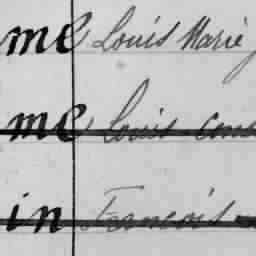 me Louis Marie
me Louis
in François